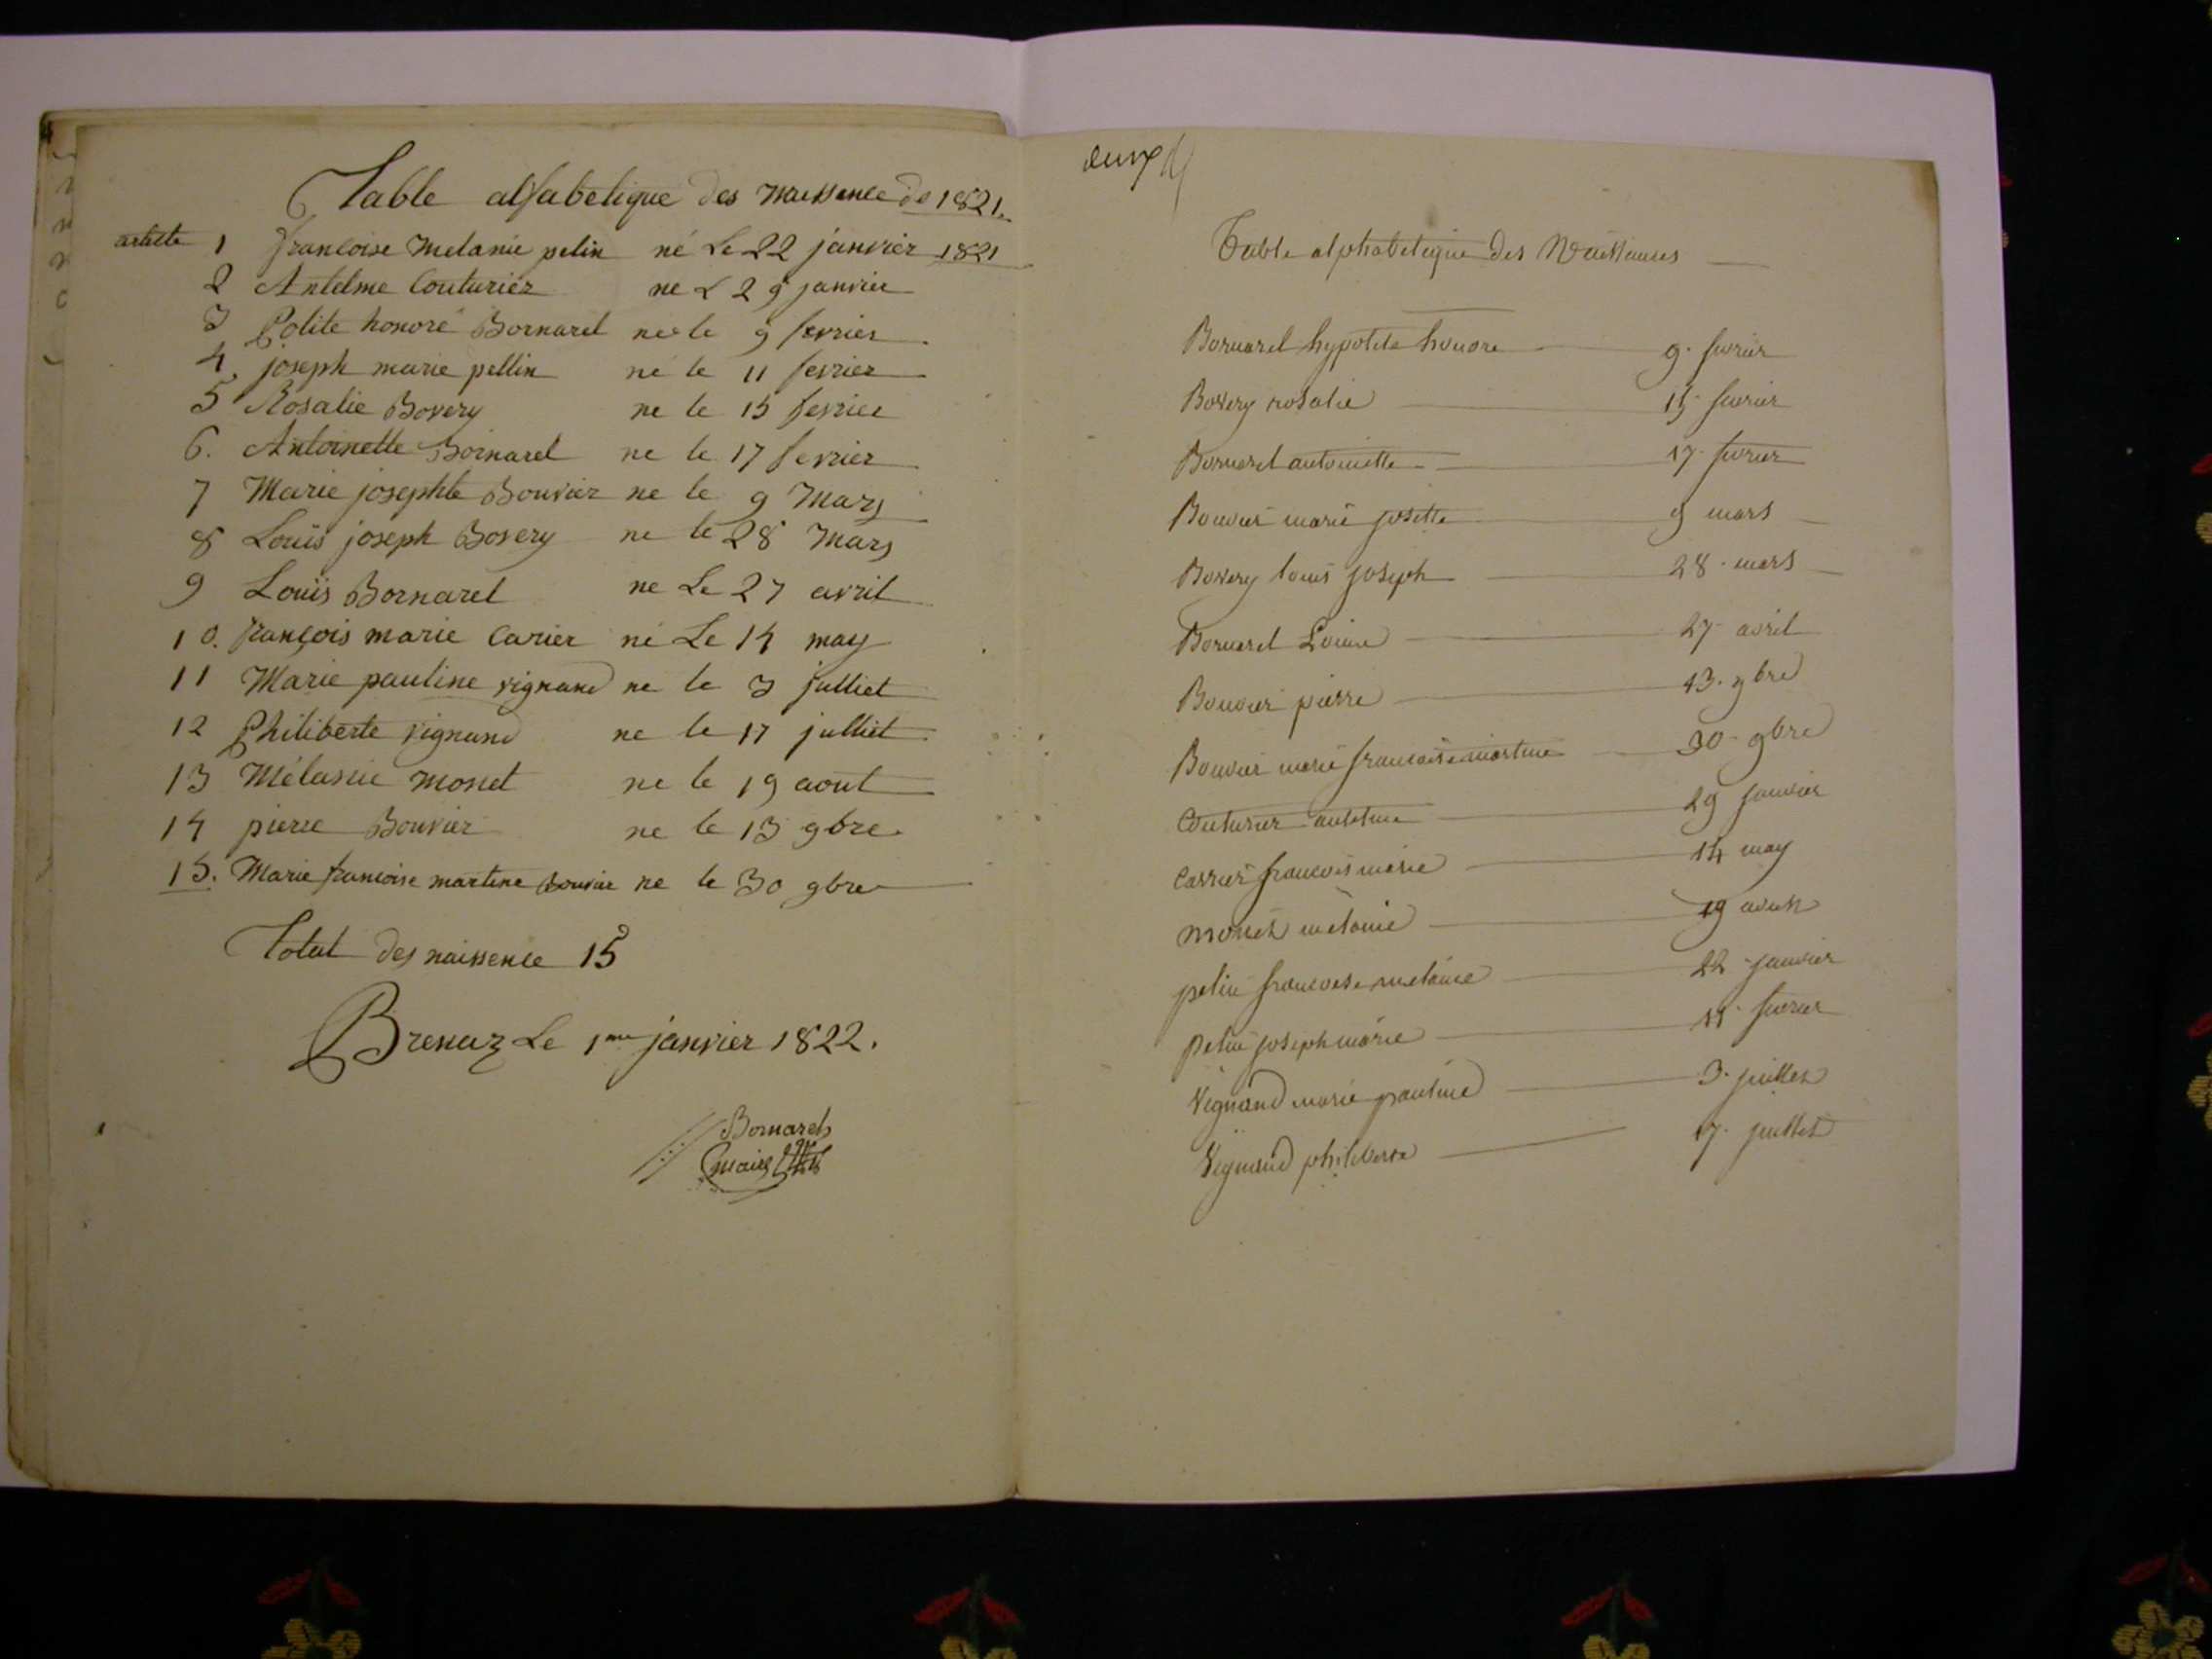 Table alfabetique des naissence de 1821
article 1 françoise melanie pelin né Le 22 janvier 1821
2 Antelme Couturier ne L 29 janvier
3 Polite honoré Bornarel née le 9 fevrier
4. joseph marie pellin né le 11 fevrier
5 Rosalie Bovery ne le 15 fevrier
6. Antoinette Bornarel ne le 17 fevrier
7 Marie josephte Bouvier ne le 9 Mars
8 Louis joseph Bovery ne le 28 Mars
9 Louis Bornarel ne Le 27 avril
10. françois marie Carier né Le 14 may
11 Marie pauline vignand ne le 3 julliet
12 Philiberte vignand ne le 17 julliet
13 Mélanie monet ne le 19 aout
14 pierre Bouvier ne le 13 9bre
15. Marie francoise martine Bouvier ne le 30 9bre
Total des naissence 15
Brenaz Le 1me janvier 1822.
Bornarel
maire
deux
Table alphabetique Des Naissances
Bornarel hypolite honore 9. fevrier
Bovery rosalie 15 fevrier
Bornarel antoinette 17 fevrier
Bouvier marie josette 9 mars
Bovery louis joseph 28 mars
Bornarel Louis 27 avril
Bouvier pierre 13. 9bre
Bouvier marie francoise martine 30 9bre
Couturier antelme 29 janvier
Carrier francois marie 14 may
monet melanie 19 aout
pelin francoise melanie 22 janvier
pelin joseph marie 11 fevrier
Vignand marie pauline 3. juillet
Vignand philiberte 17. juillet